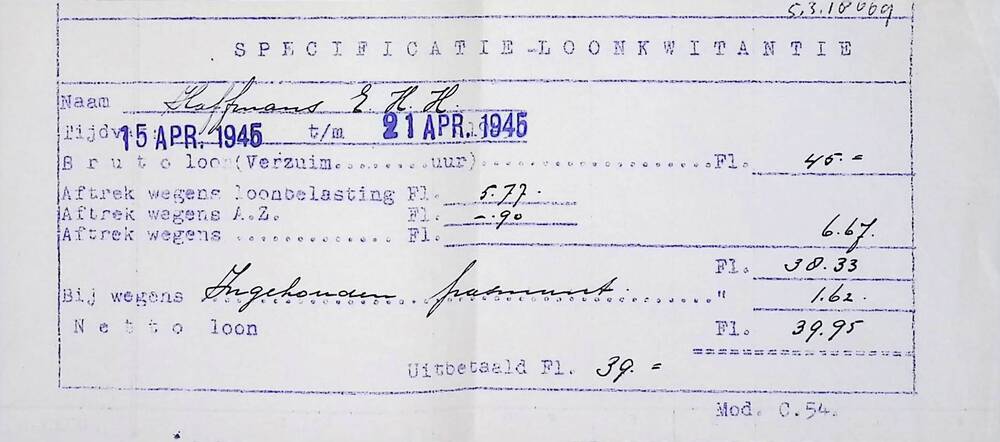 5.3.18069
SPECIFICATIE-LOONKWITANTIE
Naam Hoffmans E. H. H.
Tijdv. 15 APR. 1945 t/m 21 APR. 1945
Bruto loon (Verzuim.........uur).......................Fl. 45.=
Aftrek wegens loonbelasting Fl. 5.77.
Aftrek wegens A.Z. Fl. -.90
Aftrek wegens ............. Fl. 6.67.
Fl. 38.33
Bij wegens Ingehouden pasmunt. " 1.62.
Netto loon Fl. 39.95
Uitbetaald Fl. 39.=
Mod. C.54.